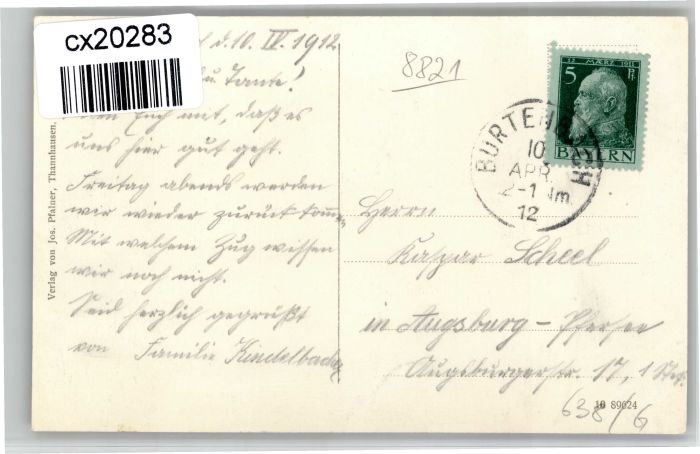 cx20283
d. 10. IV. 1912
Tante!
Euch mit, daß es
uns hier gut geht.
Freitag abends werden
wir wieder zurück kommen
Mit welchem Zug wissen
wir noch nicht.
Seid herzlich gegrüßt
von Familie Kindelbacher
Verlag von Jos. Pfalner, Thannhausen,
8821
12 MÄRZ 1911
5 Pf.
BAYERN
BURTENBACH
10
APR.
12-1 Nm.
12
Herrn
Kaspar Scheel
in Augsburg - Pfersee
Augsburgerstr. 17, 1 Stck.
10 89624
638/6